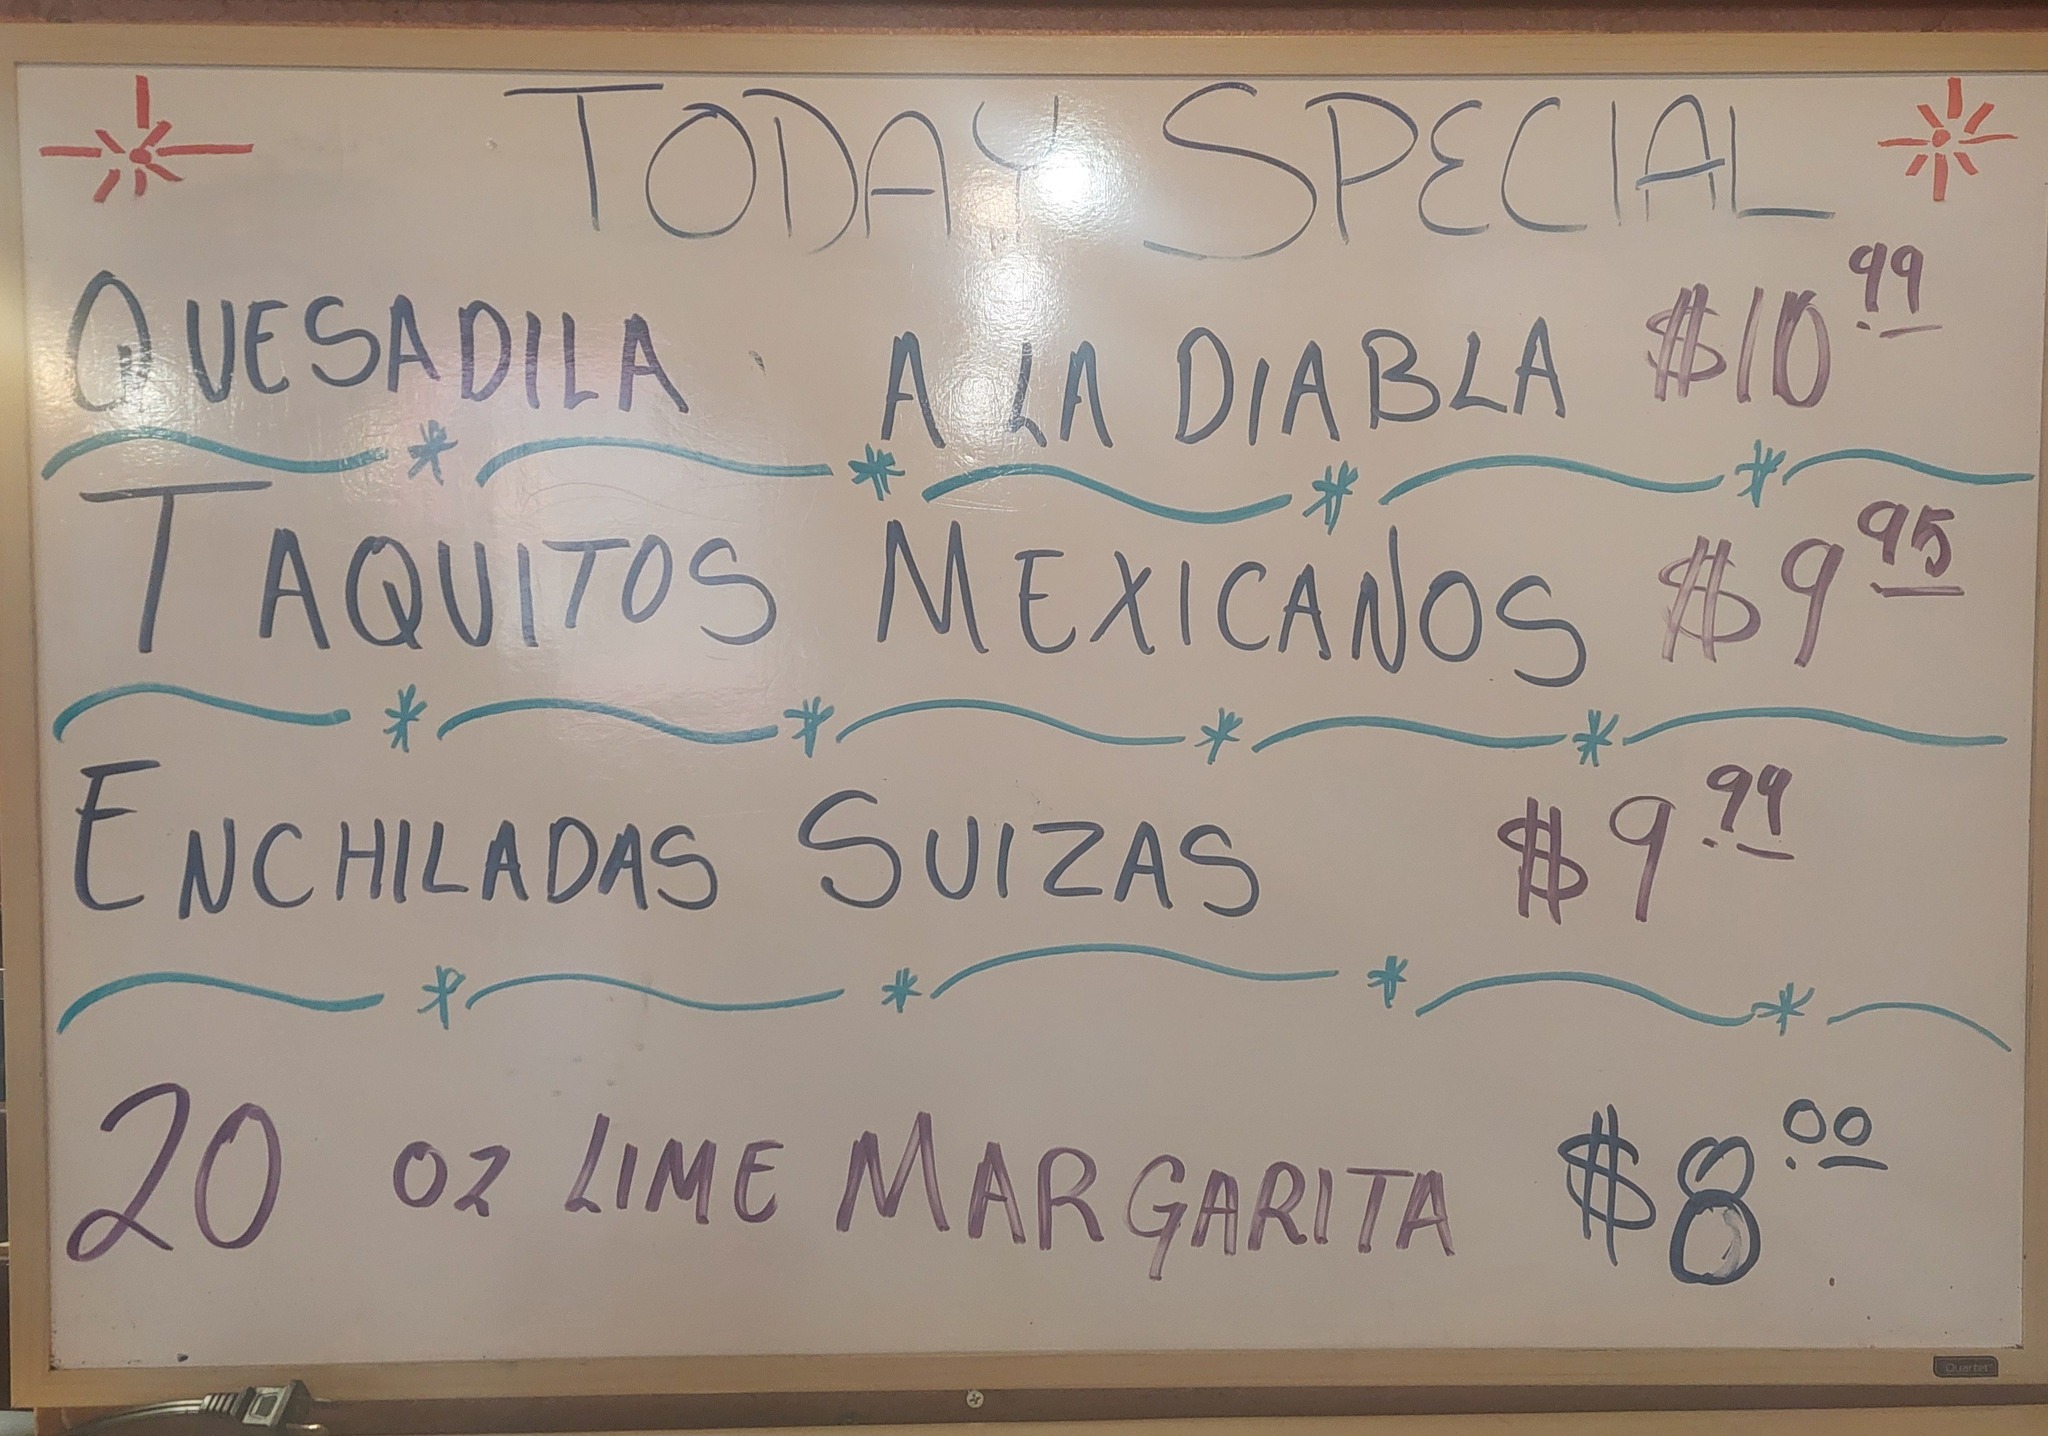 TODAY SPECIAL
QUESADILA A LA DIABLA $10.99
TAQUITOS MEXICANOS $9 95
ENCHILADAS SUIZAS $9.99
20 OZ LIME MARGARITA $8.00
Quartet